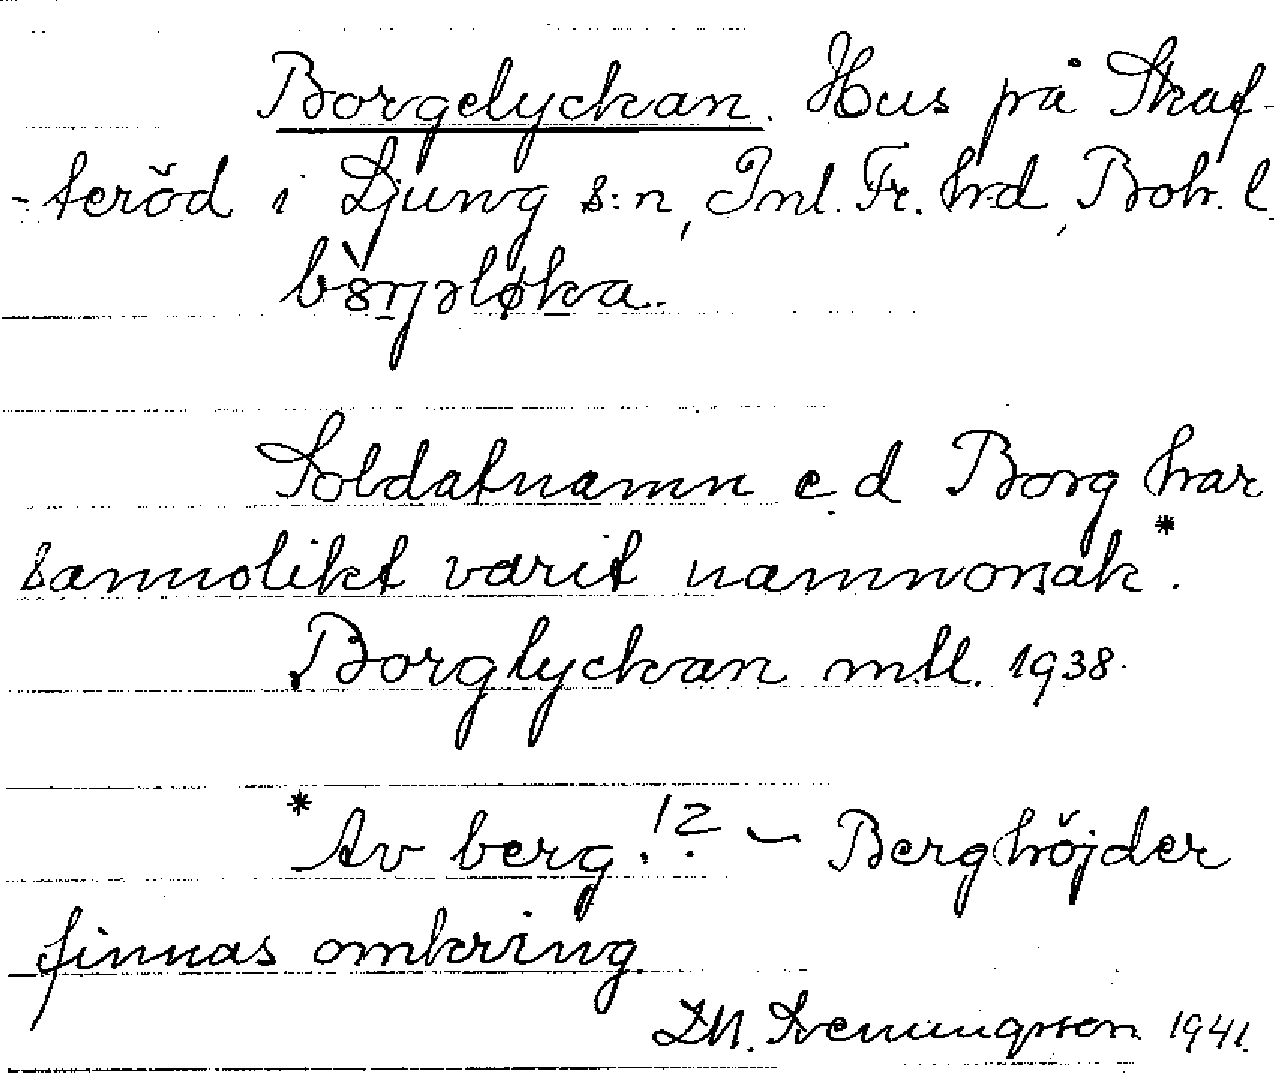 Borgelyckan. Hus på Skaf-
-teröd i Ljung s:n, Inl. Fr. hd, Boh. l.
Soldatnamn e d Borg har
sannolikt varit namnorsak*.
Borglyckan mtl. 1938.
*Av berg!? – Berghöjder
finnas omkring.
D.M. Svenungsson 1941.